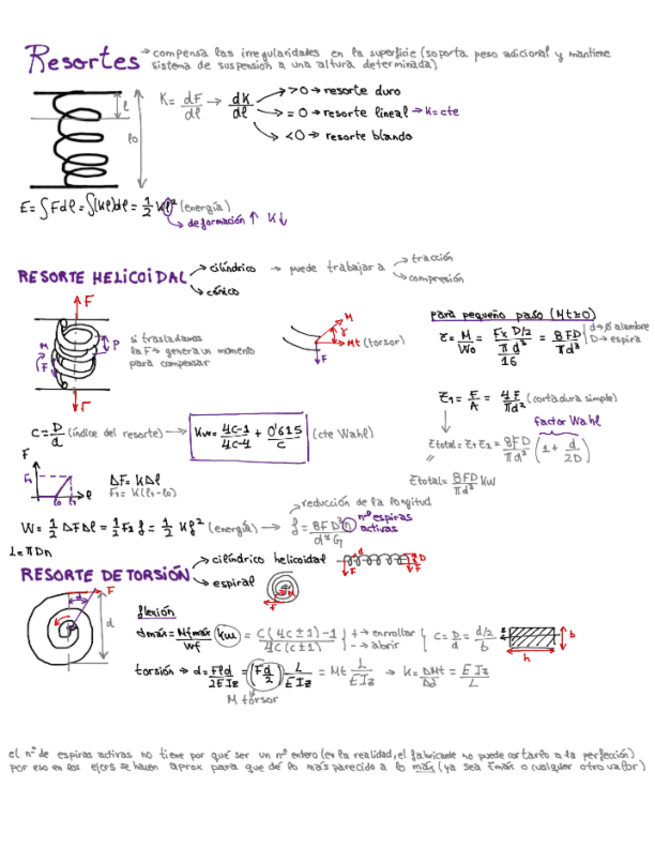 Resortes → compensa las irregularidades en la superficie (soporta peso adicional y mantiene
sistema de suspensión a una altura determinada)
K = dF/dl → dK/dl
>0 → resorte duro
=0 → resorte lineal → K=cte
<0 → resorte blando
l
l0
E = ∫Fdl = ∫(Kl)dl = 1/2 Kl² (energía)
→ deformación ↑ K↓
RESORTE HELICOIDAL
→ cilíndrico → puede trabajar a
→ tracción
→ compresión
→ cónico
F
M
F
P
F
si trasladamos
la F → genera un momento
para compensar
M
γ
Mt (torsor)
F
para pequeño paso (Mt≈0)
τ = M/W0 = F x D/2 / πd³/16 = 8FD/πd³
d → Ø alambre
D → espira
τ1 = F/A = 4F/πd² (cortadura simple)
factor Wahl
τtotal = τ+τ1 = 8FD/πd³ (1 + d/2D)
τtotal = 8FD/πd³ Kw
c = D/d (índice del resorte) → Kw = 4C-1/4C-4 + 0'615/C (cte Wahl)
F
F1
l0 l1 l
ΔF = KΔl
F1 = K(l1-l0)
→ reducción de la longitud
W = 1/2 ΔFΔl = 1/2 F1 f = 1/2 Kf² (energía) → f = 8FD³n/d⁴G
nº espiras
activas
L=πDn
RESORTE DE TORSIÓN
→ cilíndrico helicoidal
→ espiral
d
D
F
F
F
F
d
flexión
σmáx = Mfmáx/Wf Kw = C(4C±1)-1/4C(C±1)
+ → enrollar
- → abrir
C = D/d = d/2/b
b
h
torsión → d = Fld/2EIz = (Fd/2) L/EIz = Mt L/EIz → K = ΔMt/Δd = EIz/L
M torsor
el nº de espiras activas no tiene por qué ser un nº entero (en la realidad, el fabricante no puede cortarlo a la perfección)
por eso en los ejers se hacen aprox para que dé lo más parecido a lo máx (ya sea τmáx o cualquier otro valor)